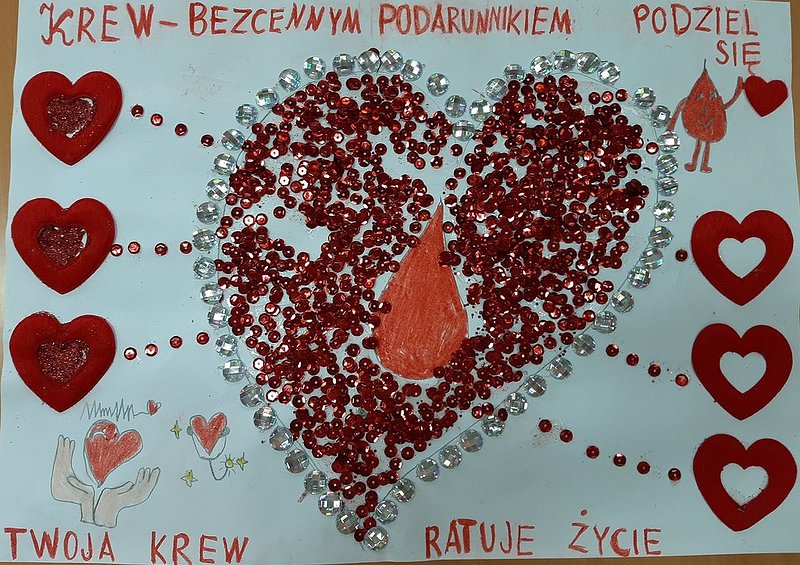 KREW – BEZCENNYM PODARUNNIKIEM PODZIEL
SIĘ
TWOJA KREW RATUJE ŻYCIE